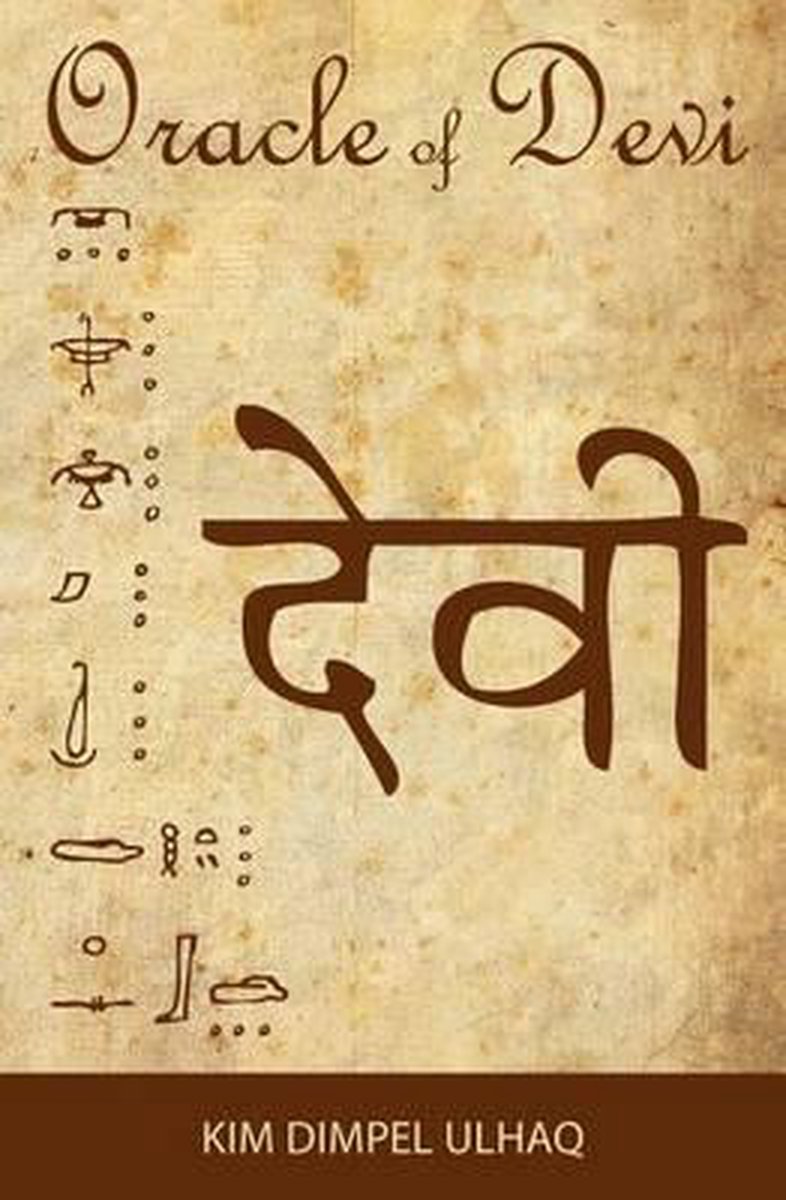 Oracle of Devi
देवी
KIM DIMPEL ULHAQ